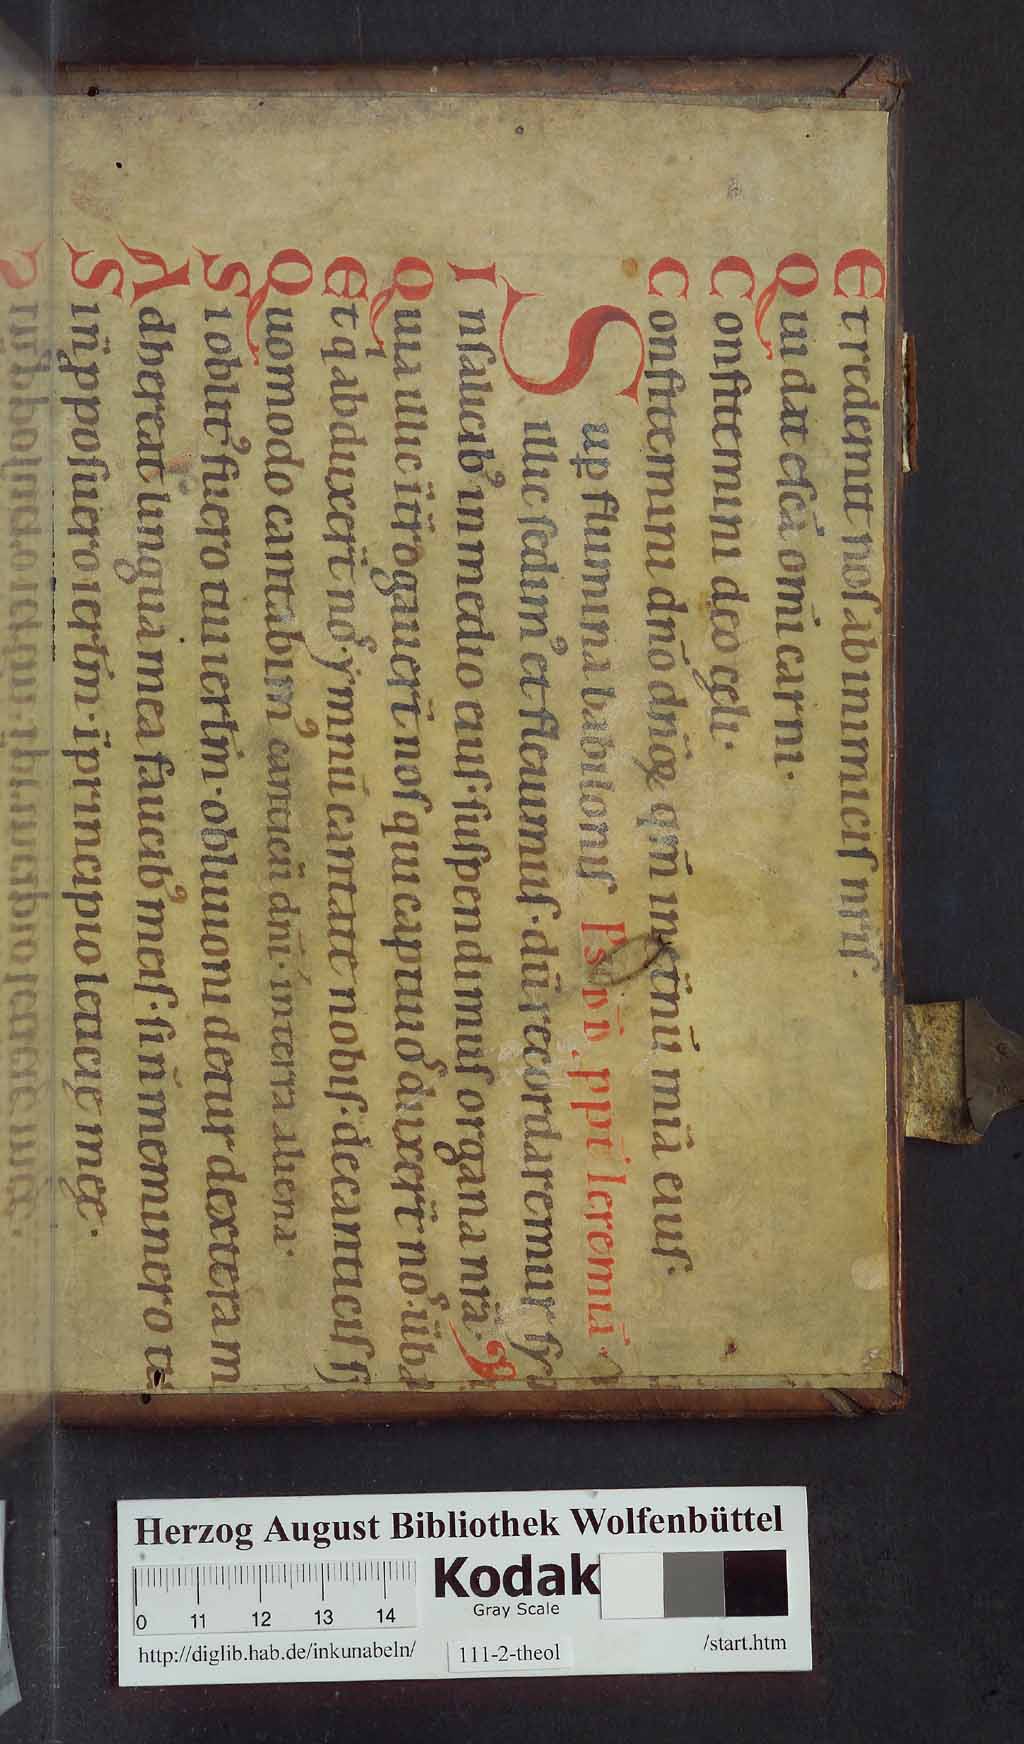 Et redemit noſ ab inimiciſ nr̄iſ.
Qui dat eſcā om̄i carni.
Confitemini deo cęli.
Confitemini dn̄o dn̄oꝝ qm̄ in et̄nū mīa eiuſ.
Sup̱ flumina babiloniſ Ps. D̄D. ꝓp̱t Ieremiā.
illic ſedimꝰ et fleuimuſ. dū recordaremur ſy
In ſalicibꝰ in medio eiuſ. ſuſpendimuſ organa nr̄a.
Quia illic īt̄rogauer̄t noſ qui captiuoſ duxer̄t noſ. ūba
Et q̇ abduxer̄t noſ. ymnū cantate nobiſ. de canticiſ ſy
Quomodo cantabimꝰ canticū dn̄i. in terra aliena.
Si oblitꝰ fuero tui ierłm. obliuioni detur dextera m
Adhereat lingua mea faucibꝰ meiſ. ſi n̄ meminero tu
Si n̄ ꝓpoſuero ierłm. ī principio lęticię męę.
Herzog August Bibliothek Wolfenbüttel
0 11 12 13 14
Kodak
Gray Scale
http://diglib.hab.de/inkunabeln/
111-2-theol
/start.htm